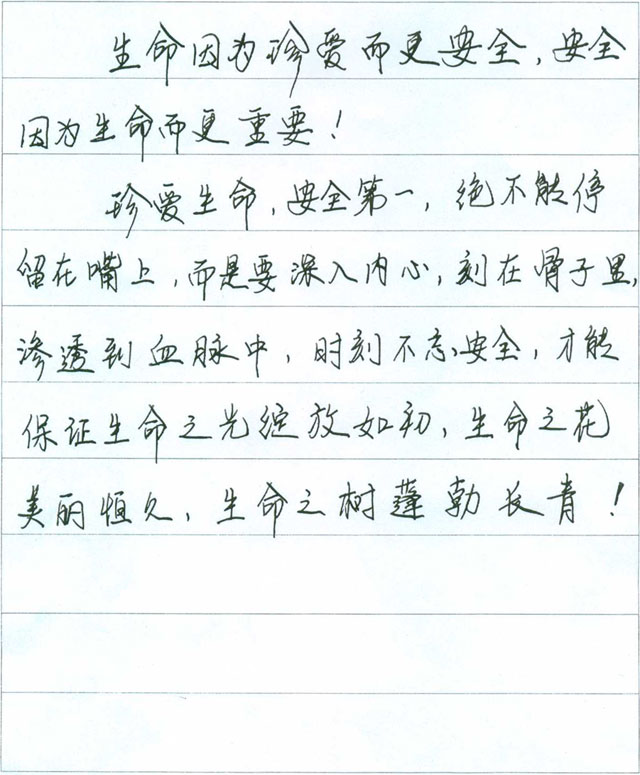 生命因为珍爱而更安全，安全
因为生命而更重要！
珍爱生命，安全第一，绝不能停
留在嘴上，而是要深入内心，刻在骨子里，
渗透到血脉中，时刻不忘安全，才能
保证生命之光绽放如初，生命之花
美丽恒久，生命之树蓬勃长青！